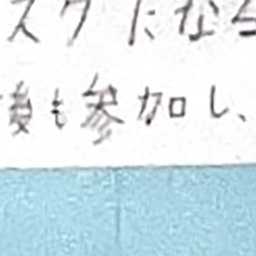 スクだなら
後も参加し、